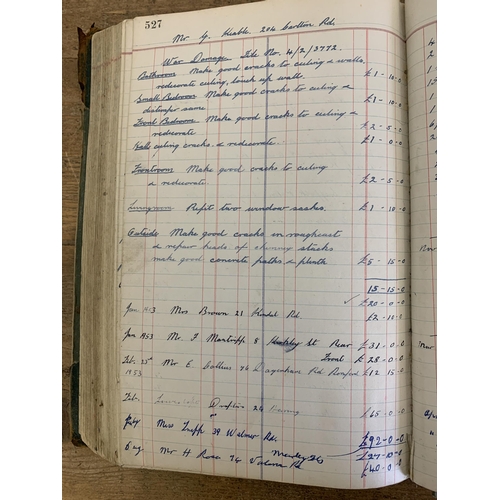 527
Mr G. Keable 204 Carlton Rd.
War Damage. File No. 4/2/3772.
Bathroom Make good cracks to ceiling & walls,
redecorate ceiling, touch up wall. £1-10-0
Small Bedroom Make good cracks to ceiling &
distemper same £1-10-0
Front Bedroom Make good cracks to ceiling &
redecorate £2-5-0
Hall ceiling cracks & redecorate £1-0-0
Frontroom Make good cracks to ceiling
& redecorate £2-5-0
Livingroom Refit two window sashes. £1-10-0
Outside Make good cracks in roughcast
& repair heads of chimney stacks
make good concrete paths & plinth £5-15-0
15-15-0
£20-0-0
Jan Mrs Brown 21 Rd £2-10-0
Jan 1953 Mr. F 8 St Rear £31-0-0
Front £28-0-0
Feb. 25 Mr E. Collins 74 Dagenham Rd Romford £12 15-0
1953
Feb. 24 £65-0-0
July Miss 39 Walmer Rd. £92-0-0
£27-10-0
Aug Mr H Rose 74 Rd £40-0-0